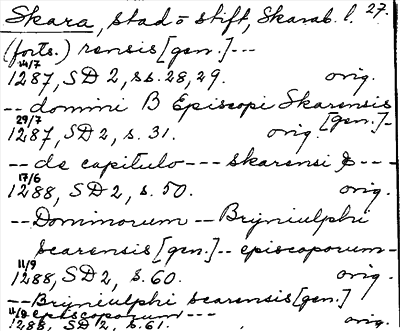 Skara, stad o stift, Skarab. l. 27.
(forts.) rensis [gen.] ---
14/7
1287, SD 2, ss. 28, 29. orig.
-- domini B Episcopi Skarensis [gen.] -
29/7
1287, SD 2, s. 31. orig.
-- de capitulo --- skarensi & ---
17/6
1288, SD 2, s. 50. orig.
-- Dominorum -- Bryniulphi
scarensis [gen.] -- episcoporum -
11/9
1288, SD 2, s. 60. orig.
-- Bryniulphi scarensis [gen.]
-- episcoporum ---
11/9
1288, SD 2, s. 61. orig.